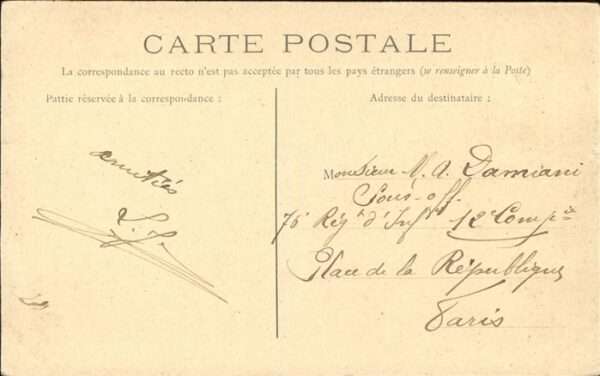 CARTE POSTALE
La correspondance au recto n'est pas acceptée par tous les pays étrangers (se renseigner à la Poste)
Partie réservée à la correspondance :
Adresse du destinataire :
amitiés
Monsieur N. A. Damiani
Sous-off.
76 Régt d'Infie 12e Compie
Place de la République
Paris